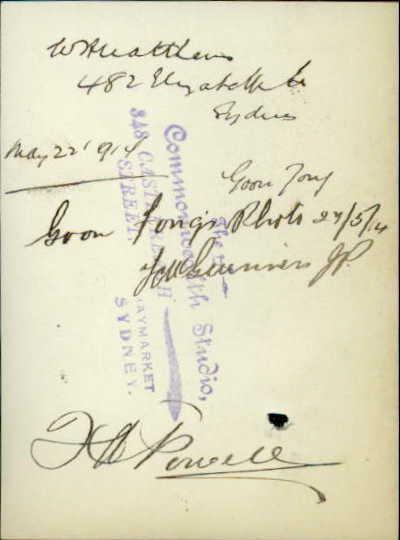 W H Matthews
482 Elizabeth St
Sydney
May 22' 914
Goon Fong
Goon Fong's Photo 27/5/14
J.P.
The
Commonwealth Studio,
848 CASTLEREAGH
STREET
HAYMARKET
SYDNEY.
Powell